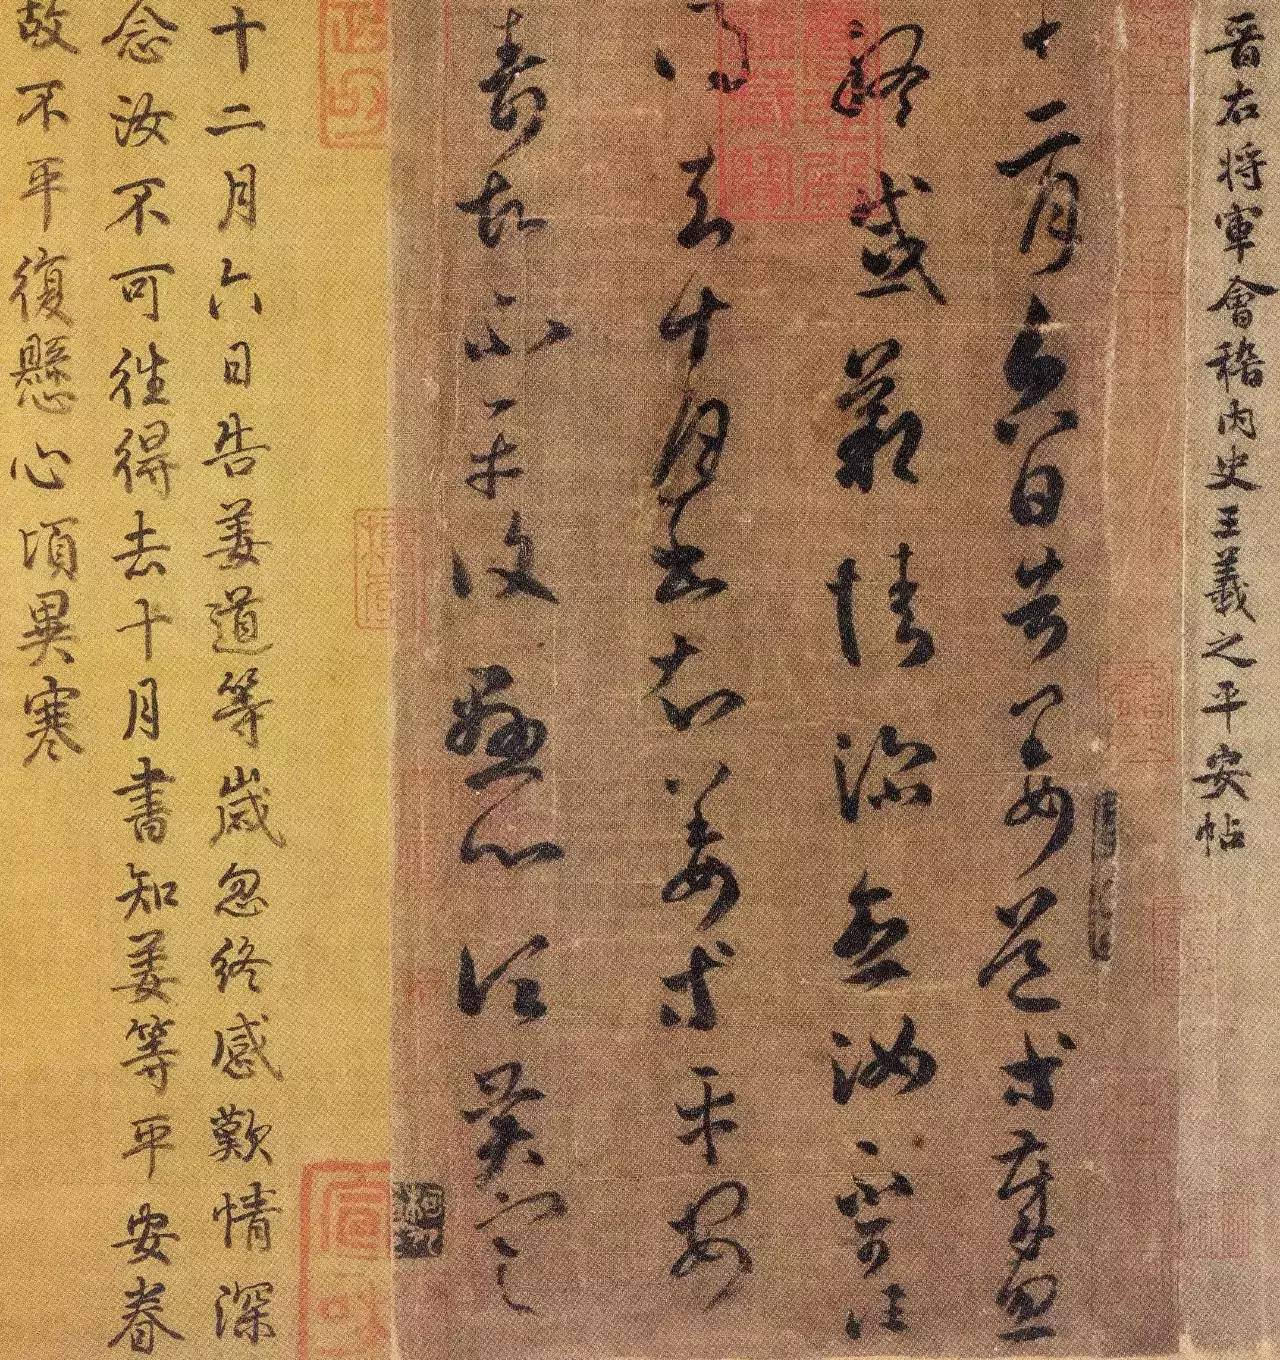 晋右将軍會稽内史王羲之平安帖
十二月六日告姜道等歲忽
終感歎情深念汝不可往
得去十月書知姜等平安
眷故不平復懸心頃異寒
十二月六日告姜道等歲忽終感歎情深
念汝不可徃得去十月書知姜等平安眷
故不平復懸心頃異寒